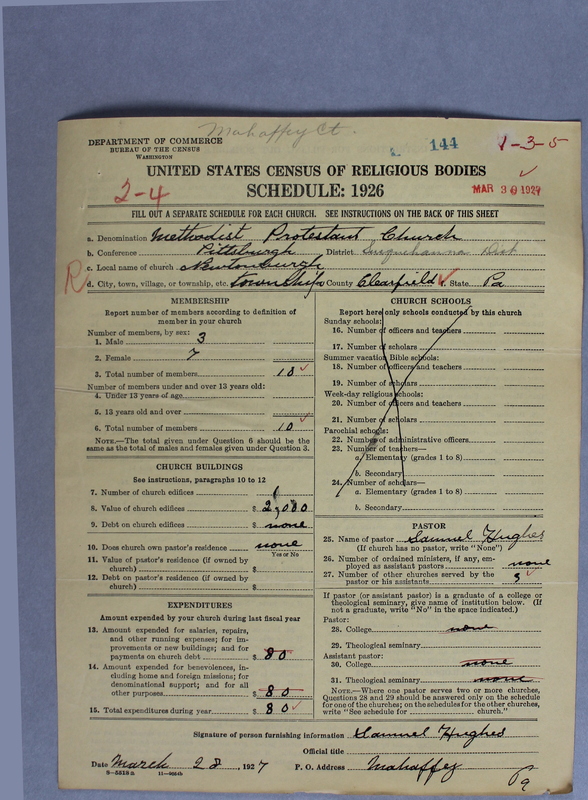 Mahaffey Ct.
DEPARTMENT OF COMMERCE
BUREAU OF THE CENSUS
WASHINGTON
144
1-3-5
UNITED STATES CENSUS OF RELIGIOUS BODIES
SCHEDULE: 1926
2-4
MAR 30 1927
FILL OUT A SEPARATE SCHEDULE FOR EACH CHURCH. SEE INSTRUCTIONS ON THE BACK OF THIS SHEET
a. Denomination Methodist Protestant Church
b. Conference Pittsburgh District Susquehanna Dist
c. Local name of church Newtonburgh
R
d. City, town, village, or township, etc. township County Clearfield f. State Pa
MEMBERSHIP
Report number of members according to definition of
member in your church
Number of members, by sex:
1. Male 3
2. Female 7
3. Total number of members 10
Number of members under and over 13 years old:
4. Under 13 years of age
5. 13 years old and over
6. Total number of members 10
NOTE.—The total given under Question 6 should be the
same as the total of males and females given under Question 3.
CHURCH BUILDINGS
See instructions, paragraphs 10 to 12
7. Number of church edifices 1
8. Value of church edifices $ 2,000
9. Debt on church edifices $ none
10. Does church own pastor's residence none
Yes or No
11. Value of pastor's residence (if owned by
church) $
12. Debt on pastor's residence (if owned by
church) $
EXPENDITURES
Amount expended by your church during last fiscal year
13. Amount expended for salaries, repairs,
and other running expenses; for im-
provements or new buildings; and for
payments on church debt $ 80
14. Amount expended for benevolences, in-
cluding home and foreign missions; for
denominational support; and for all
other purposes $ 80
15. Total expenditures during year $ 80
CHURCH SCHOOLS
Report here only schools conducted by this church
Sunday schools:
16. Number of officers and teachers
17. Number of scholars
Summer vacation Bible schools:
18. Number of officers and teachers
19. Number of scholars
Week-day religious schools:
20. Number of officers and teachers
21. Number of scholars
Parochial schools:
22. Number of administrative officers
23. Number of teachers—
a. Elementary (grades 1 to 8)
b. Secondary
24. Number of scholars—
a. Elementary (grades 1 to 8)
b. Secondary
PASTOR
25. Name of pastor Samuel Hughes
(If church has no pastor, write "None")
26. Number of ordained ministers, if any, em-
ployed as assistant pastors none
27. Number of other churches served by the
pastor or his assistants 3
If pastor (or assistant pastor) is a graduate of a college or
theological seminary, give name of institution below. (If
not a graduate, write "No" in the space indicated.)
Pastor:
28. College none
29. Theological seminary
Assistant pastor:
30. College none
31. Theological seminary none
NOTE.—Where one pastor serves two or more churches,
Questions 28 and 29 should be answered only on the schedule
for one of the churches; on the schedules for the other churches,
write "See schedule for church."
Signature of person furnishing information Samuel Hughes
Official title
Date March 28, 1927 P. O. Address Mahaffey
Pa
8-5318a 11-9664b